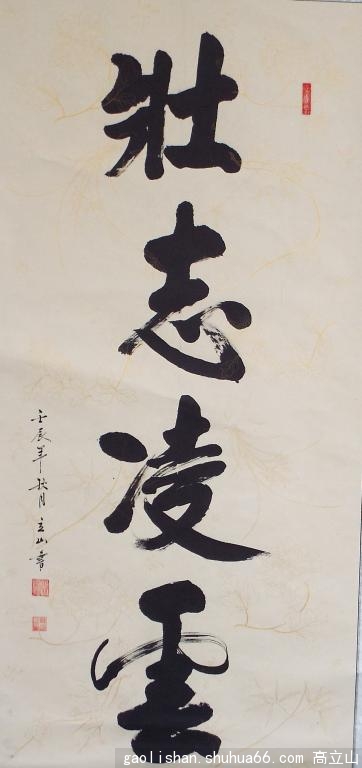 壯志凌雲
壬辰年秋月立山書
gaolishan.shuhua66.com 高立山